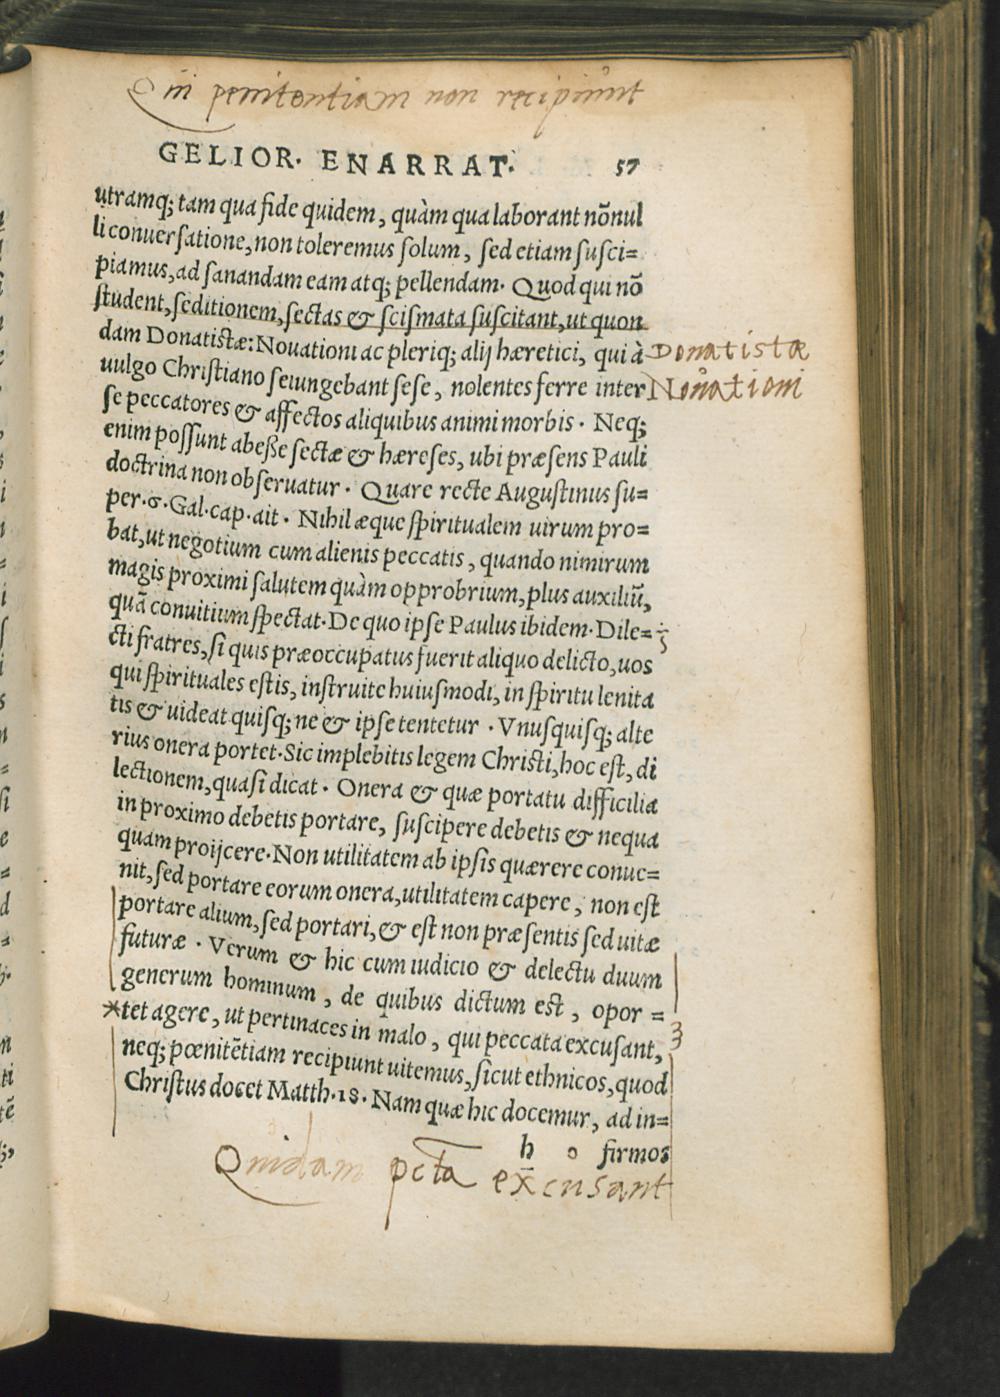 Qui penitentiam non recipiunt
GELIOR. ENARRAT. 57
utramq; tam qua fide quidem, quàm qua laborant nõnul
li conuersatione, non toleremus solum, sed etiam susci=
piamus, ad sanandam eam atq; pellendam. Quod qui nõ
student, seditionem, sectas & scismata suscitant, ut quon
dam Donatistæ: Nouationi ac pleriq; alij hæretici, qui à
Donatistæ
uulgo Christiano seiungebant sese, nolentes ferre inter
Nouationi
se peccatores & affectos aliquibus animi morbis. Neq;
enim possunt abesse sectæ & hæreses, ubi præsens Pauli
doctrina non obseruatur. Quare recte Augustinus su=
per.6.Gal.cap.ait. Nihil æque spiritualem uirum pro=
bat, ut negotium cum alienis peccatis, quando nimirum
magis proximi salutem quàm opprobrium, plus auxiliũ,
quã conuitium spectat. De quo ipse Paulus ibidem. Dile=
cti fratres, si quis præoccupatus fuerit aliquo delicto, uos
qui spirituales estis, instruite huiusmodi, in spiritu lenita
tis & uideat quisq; ne & ipse tentetur. Vnusquisq; alte
rius onera portet. Sic implebitis legem Christi, hoc est, di
lectionem, quasi dicat. Onera & quæ portatu difficilia
in proximo debetis portare, suscipere debetis & nequa
quam proijcere. Non utilitatem ab ipsis quærere conue=
nit, sed portare eorum onera, utilitatem capere, non est
portare alium, sed portari, & est non præsentis sed uitæ
futuræ. Verum & hic cum iudicio & delectu duum
generum hominum, de quibus dictum est, opor=
*tet agere, ut pertinaces in malo, qui peccata excusant,
neq; pœnitẽtiam recipiunt uitemus, sicut ethnicos, quod
Christus docet Matth.18. Nam quæ hic docemur, ad in=
h firmos
Quidam pcta excusant